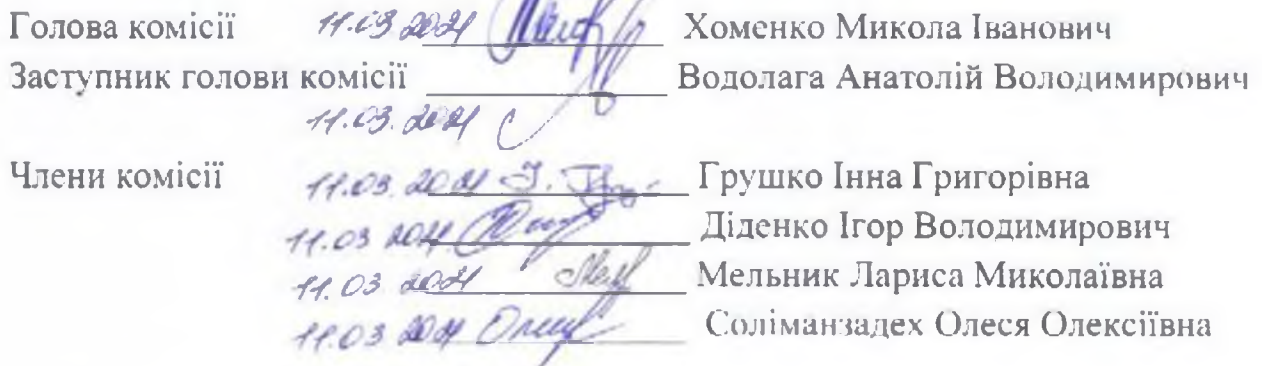 Голова комісії 11.03.2021 Хоменко Микола Іванович
Заступник голови комісії Водолага Анатолій Володимирович
11.03.2021
Члени комісії 11.03.2021 Грушко Інна Григорівна
11.03 2021 Діденко Ігор Володимирович
11.03 2021 Мельник Лариса Миколаївна
11.03 2021 Соліманзадех Олеся Олексіївна